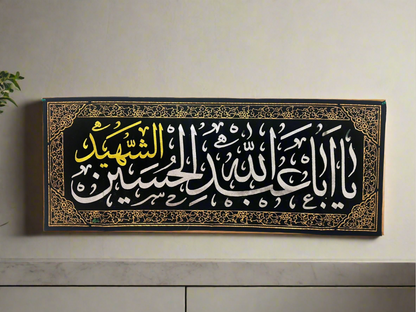 يا اَبا عَبدِ اللّه الحُسَين الشَّهيد